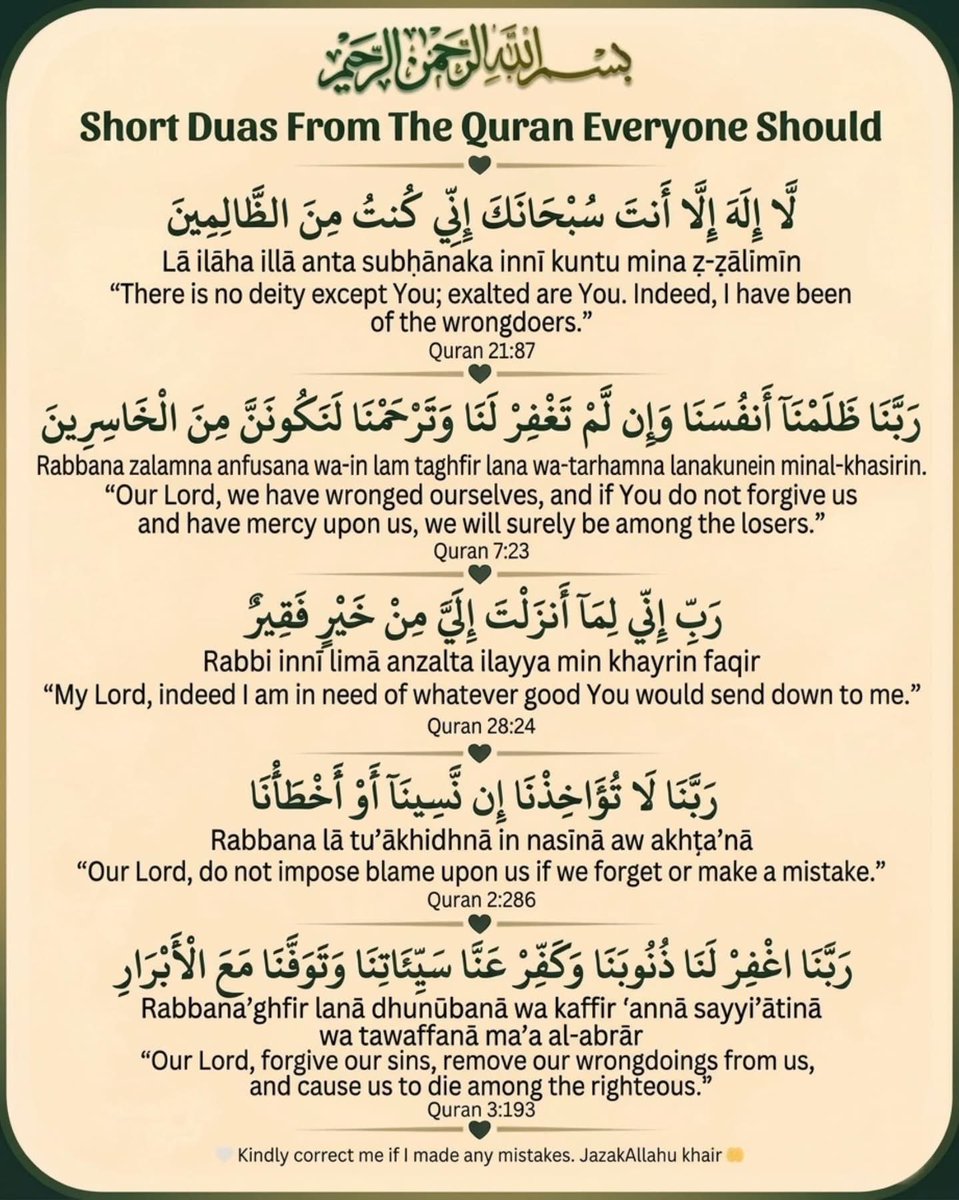 بسم الله الرحمن الرحيم
Short Duas From The Quran Everyone Should
لَّا إِلَٰهَ إِلَّا أَنتَ سُبْحَانَكَ إِنِّي كُنتُ مِنَ الظَّالِمِينَ
Lā ilāha illā anta subḥānaka innī kuntu mina ẓ-ẓālimīn
“There is no deity except You; exalted are You. Indeed, I have been
of the wrongdoers.”
Quran 21:87
رَبَّنَا ظَلَمْنَآ أَنفُسَنَا وَإِن لَّمْ تَغْفِرْ لَنَا وَتَرْحَمْنَا لَنَكُونَنَّ مِنَ الْخَاسِرِينَ
Rabbana zalamna anfusana wa-in lam taghfir lana wa-tarhamna lanakunein minal-khasirin.
“Our Lord, we have wronged ourselves, and if You do not forgive us
and have mercy upon us, we will surely be among the losers.”
Quran 7:23
رَبِّ إِنِّي لِمَآ أَنزَلْتَ إِلَيَّ مِنْ خَيْرٍ فَقِيرٌ
Rabbi innī limā anzalta ilayya min khayrin faqir
“My Lord, indeed I am in need of whatever good You would send down to me.”
Quran 28:24
رَبَّنَا لَا تُؤَاخِذْنَا إِن نَّسِينَآ أَوْ أَخْطَأْنَا
Rabbana lā tu’ākhidhnā in nasīnā aw akhṭa’nā
“Our Lord, do not impose blame upon us if we forget or make a mistake.”
Quran 2:286
رَبَّنَا اغْفِرْ لَنَا ذُنُوبَنَا وَكَفِّرْ عَنَّا سَيِّئَاتِنَا وَتَوَفَّنَا مَعَ الْأَبْرَارِ
Rabbana’ghfir lanā dhunūbanā wa kaffir ‘annā sayyi’ātinā
wa tawaffanā ma’a al-abrār
“Our Lord, forgive our sins, remove our wrongdoings from us,
and cause us to die among the righteous.”
Quran 3:193
Kindly correct me if I made any mistakes. JazakAllahu khair